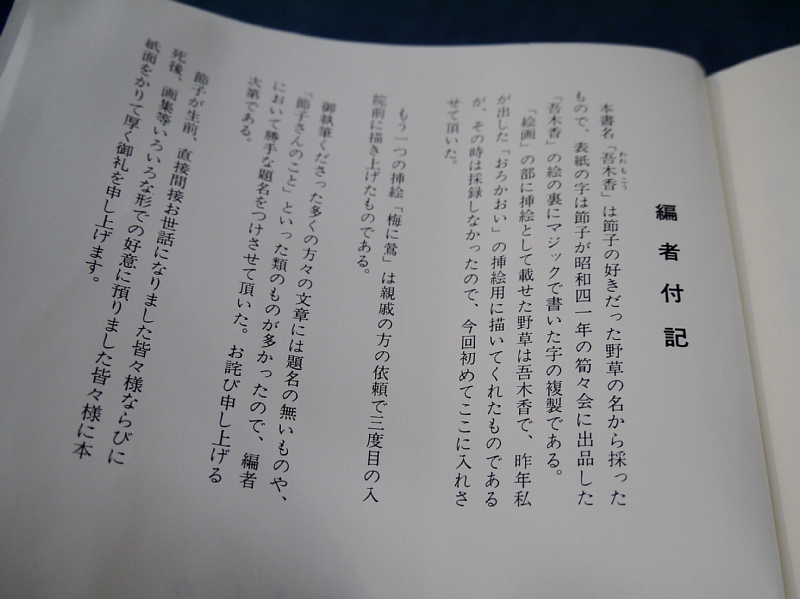 編者付記
われもこう
本書名「吾木香」は節子の好きだった野草の名から採った
もので、表紙の字は節子が昭和四一年の筍々会に出品した
「吾木香」の絵の裏にマジックで書いた字の複製である。
「絵画」の部に挿絵として載せた野草は吾木香で、昨年私
が出した「おろかおい」の挿絵用に描いてくれたものである
が、その時は採録しなかったので、今回初めてここに入れさ
せて頂いた。
もう一つの挿絵「梅に鶯」は親戚の方の依頼で三度目の入
院前に描き上げたものである。
御執筆くださった多くの方々の文章には題名の無いものや、
「節子さんのこと」といった類のものが多かったので、編者
において勝手な題名をつけさせて頂いた。お詫び申し上げる
次第である。
節子が生前、直接間接お世話になりました皆々様ならびに
死後、画集等いろいろな形での好意に預りました皆々様に本
紙面をかりて厚く御礼を申し上げます。